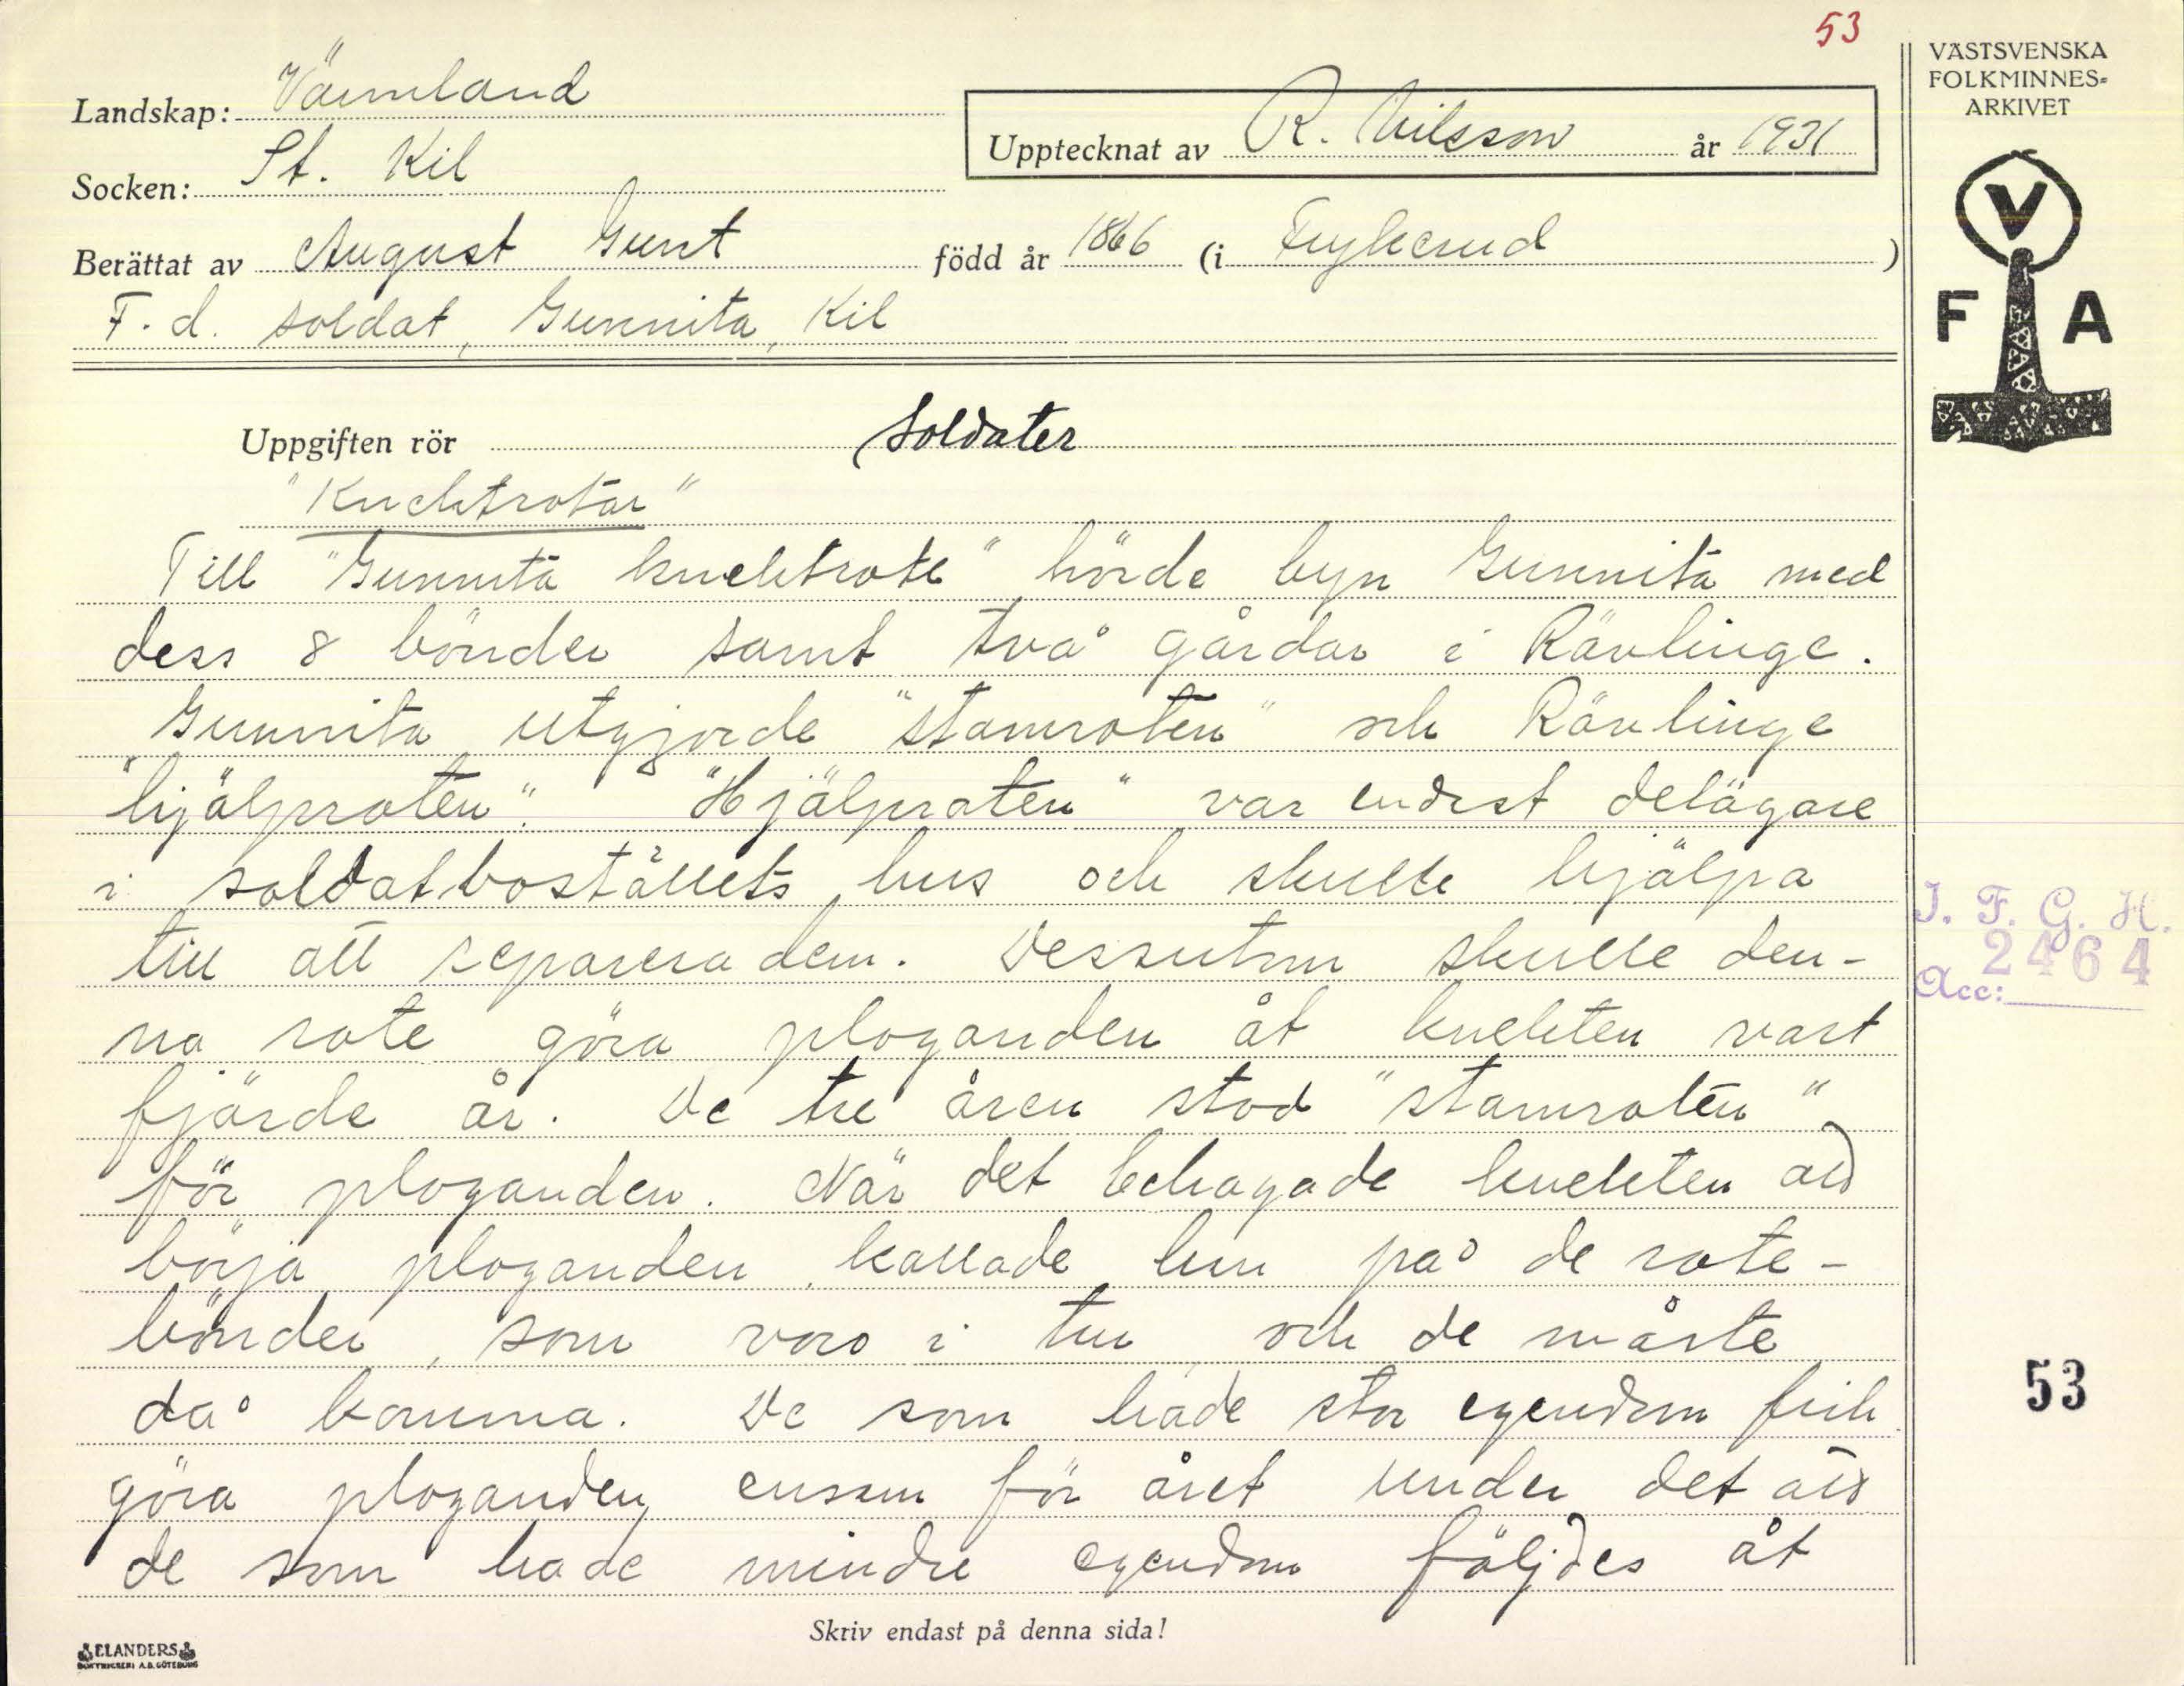 53
VÄSTSVENSKA
FOLKMINNES=
ARKIVET
Landskap: Värmland
Upptecknat av R. Nilsson år 1931
Socken: St. Kil
Berättat av August Gunt född år 1866 (i Frykerud)
F. d. soldat, Gunnita, Kil
V
F A
Uppgiften rör Soldater
"Knektrotar"
Till "Gunnita knektrote" hörde byn Gunnita med
dess 8 bönder samt två gårdar i Rävlinge.
Gunnita utgjorde "stamroten" och Rävlinge
"hjälproten". "Hjälproten" var endast delägare
i soldatboställets hus och skulle hjälpa
till att reparera dem. Dessutom skulle den-
na rote göra plöganden åt knekten vart
fjärde år. De tre åren stod "stamroten"
för plöganden. När det behagade knekten att
börja plöganden kallade hun på de rote-
bönder, som voro i tur och de måste
då komma. De som hade stor egendom fick
göra plöganden ensam för året under det att
de som hade mindre egendom följdes åt
J. F. G. H.
2464
Acc:
53
Skriv endast på denna sida!
ELANDERS
BOKTRYCKERI A.B. GÖTEBORG